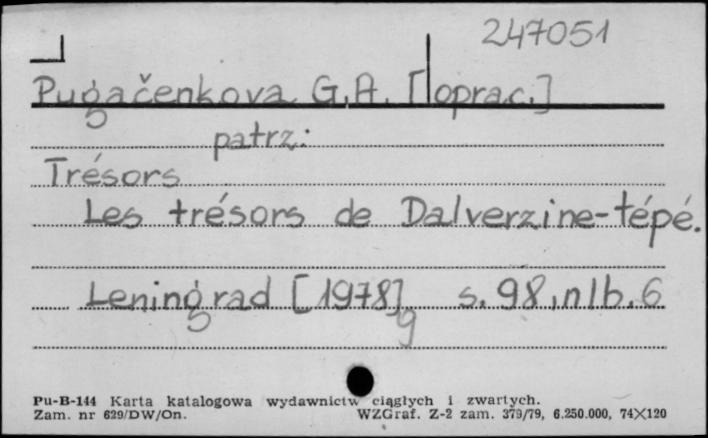 247051
Pugačenkova G.A. [oprac.]
patrz:
Trésors
Les trésors de Dalverzine-tépé.
Leningrad [1978] s. 98, nlb. 6
g
Pu-B-144 Karta katalogowa wydawnictw ciągłych i zwartych.
Zam. nr 629/DW/On. WZGraf. Z-2 zam. 379/79, 6.250.000, 74×120